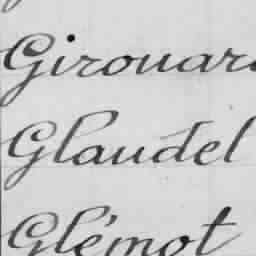 Girouar
Glaudel
Glémot